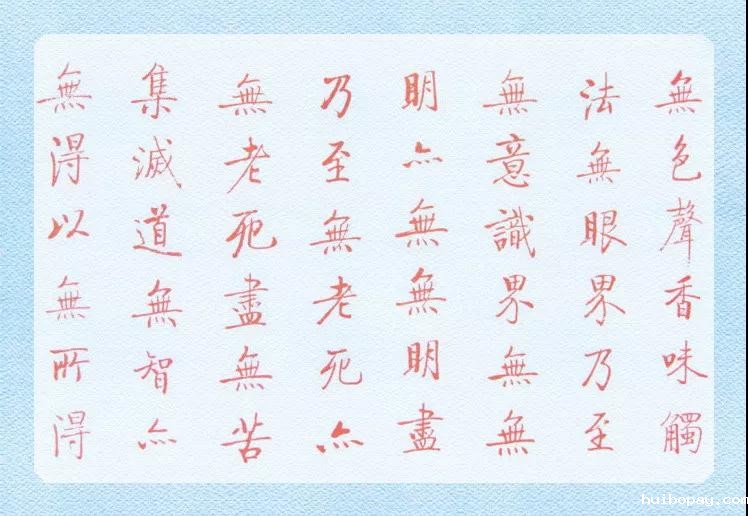 無色聲香味觸
法無眼界乃至
無意識界無無
明亦無無明盡
乃至無老死亦
無老死盡無苦
集滅道無智亦
無得以無所得
huibopay.com